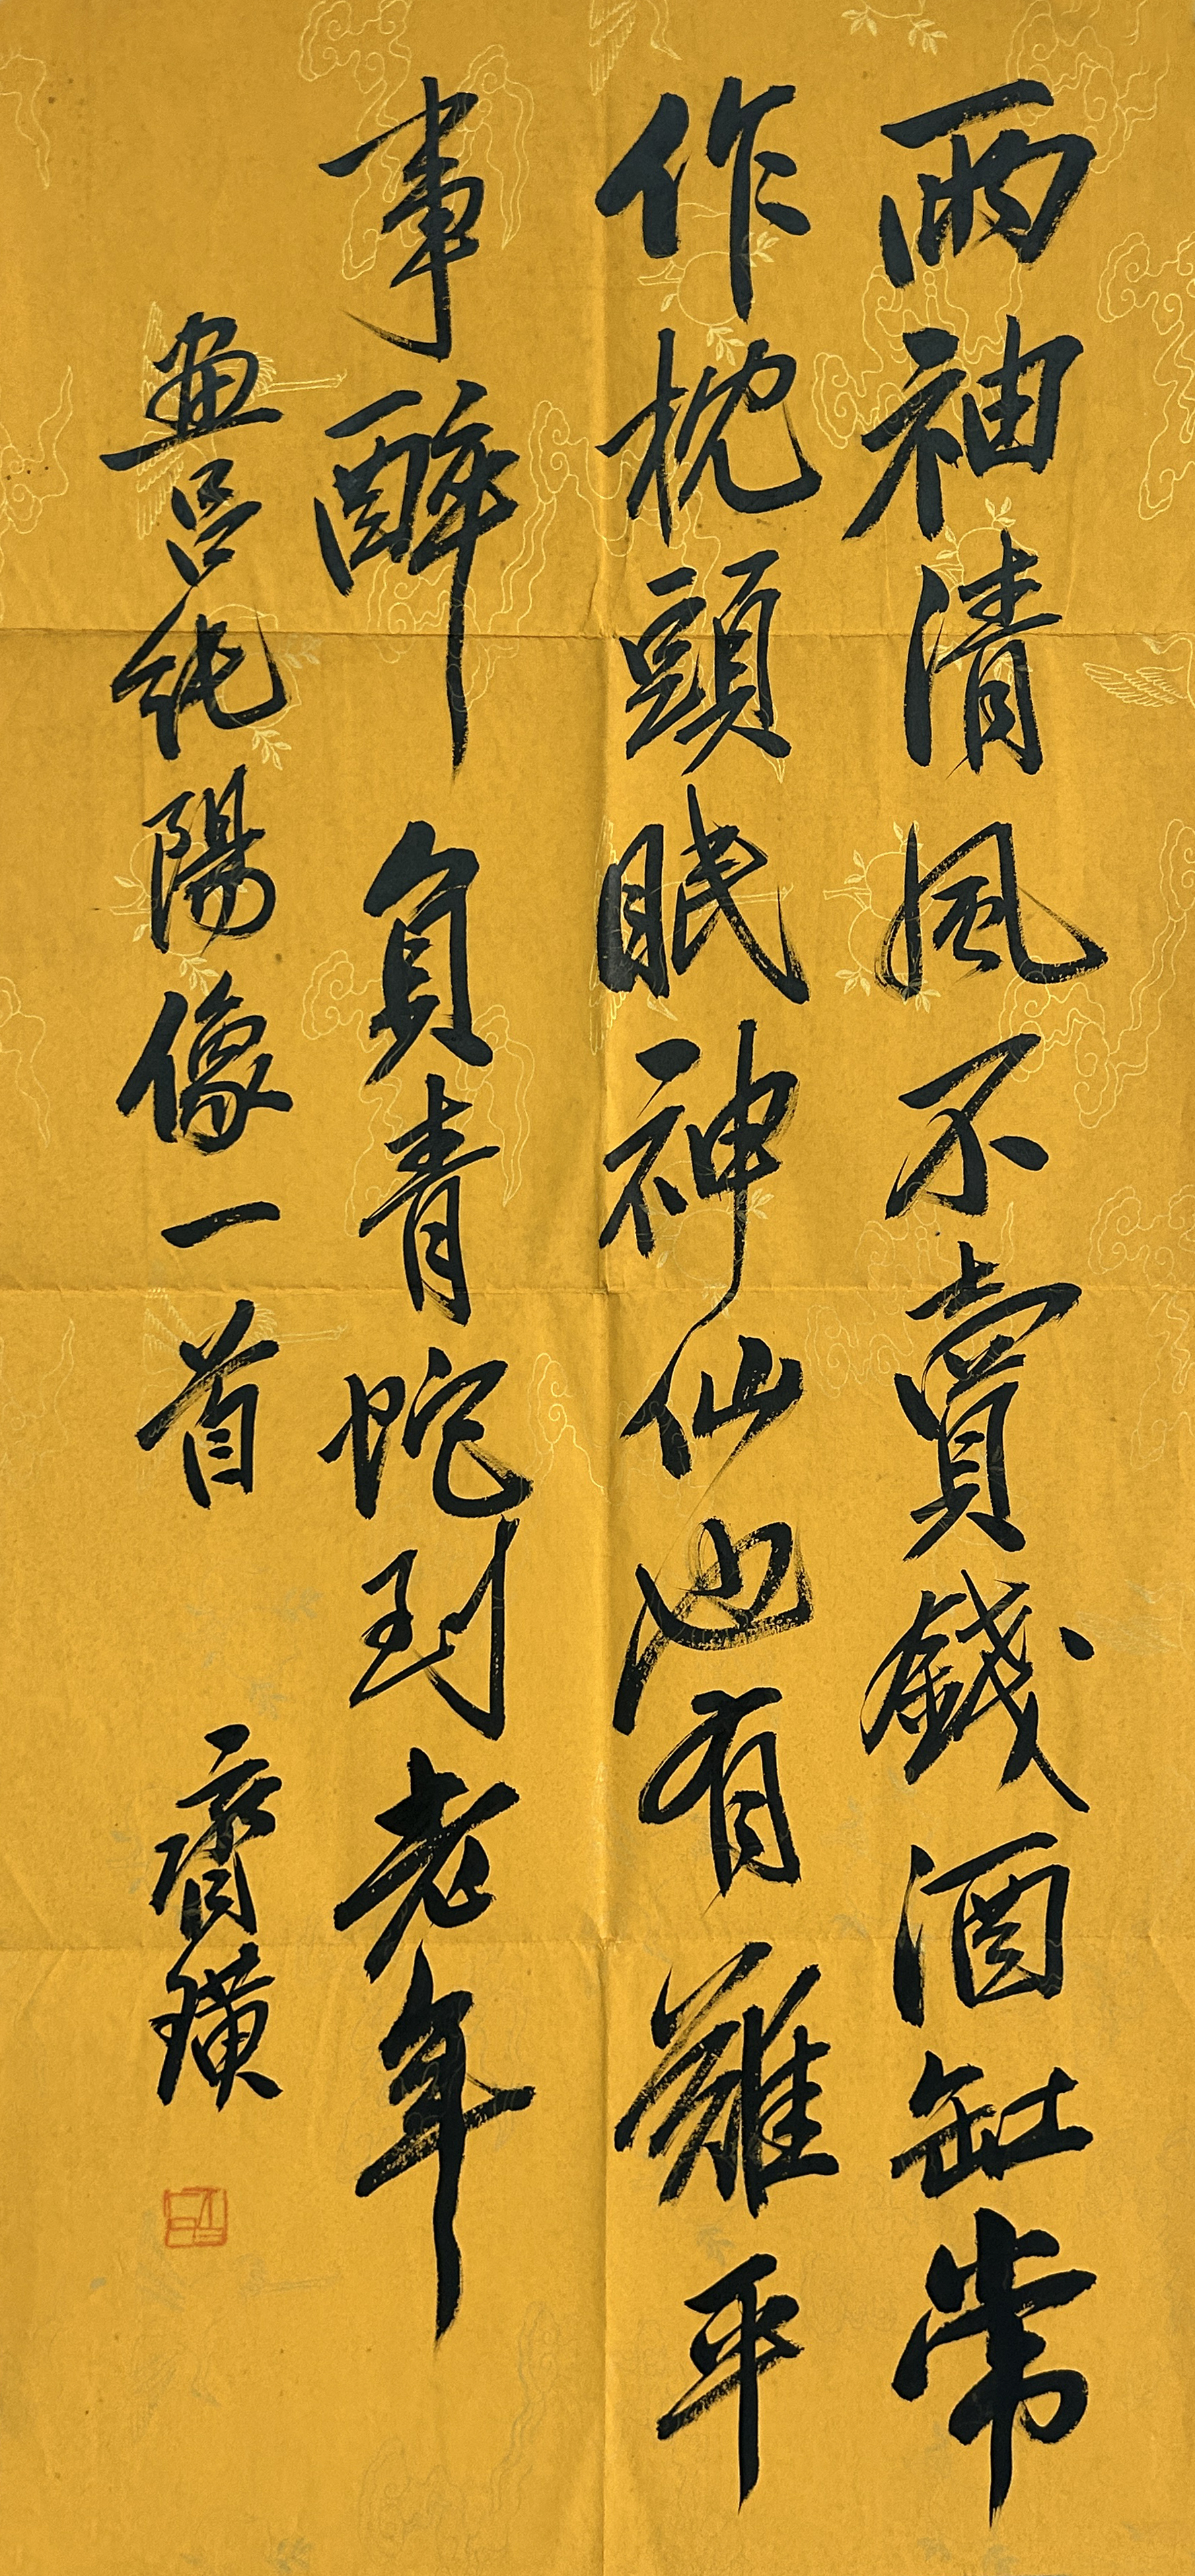 兩袖清風不賣錢酒缸常
作枕頭眠神仙也有難平
事醉負青蛇到老年
畫呂純陽像一首 齊璜